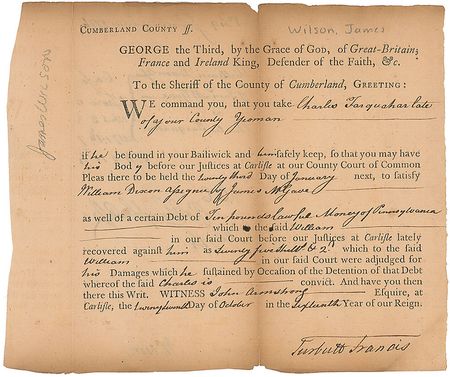 Wilson, James
CUMBERLAND COUNTY ſſ.
GEORGE the Third, by the Grace of GOD, of Great-Britain,
France and Ireland King, Defender of the Faith, &c.
To the Sheriff of the County of Cumberland, GREETING:
WE command you, that you take Charles Farquahar late
of your County Yeoman
if he be found in your Bailiwick and him ſafely keep, ſo that you may have
his Body before our Juſtices at Carliſle at our County Court of Common
Pleas there to be held the twenty third Day of January next, to ſatisfy
William Dixon aſsignee of James
as well of a certain Debt of Ten pounds lawful Money of Pennsylvania
which the ſaid William
in our ſaid Court before our Juſtices at Carliſle lately
recovered againſt him as which to the ſaid
William in our ſaid Court were adjudged for
his Damages which he ſuſtained by Occaſion of the Detention of that Debt
whereof the ſaid Charles is convict. And have you then
there this Writ. WITNESS John Armstrong Eſquire, at
Carliſle, the Day of October in the Sixteenth Year of our Reign.
Turbutt Francis
James Wilson